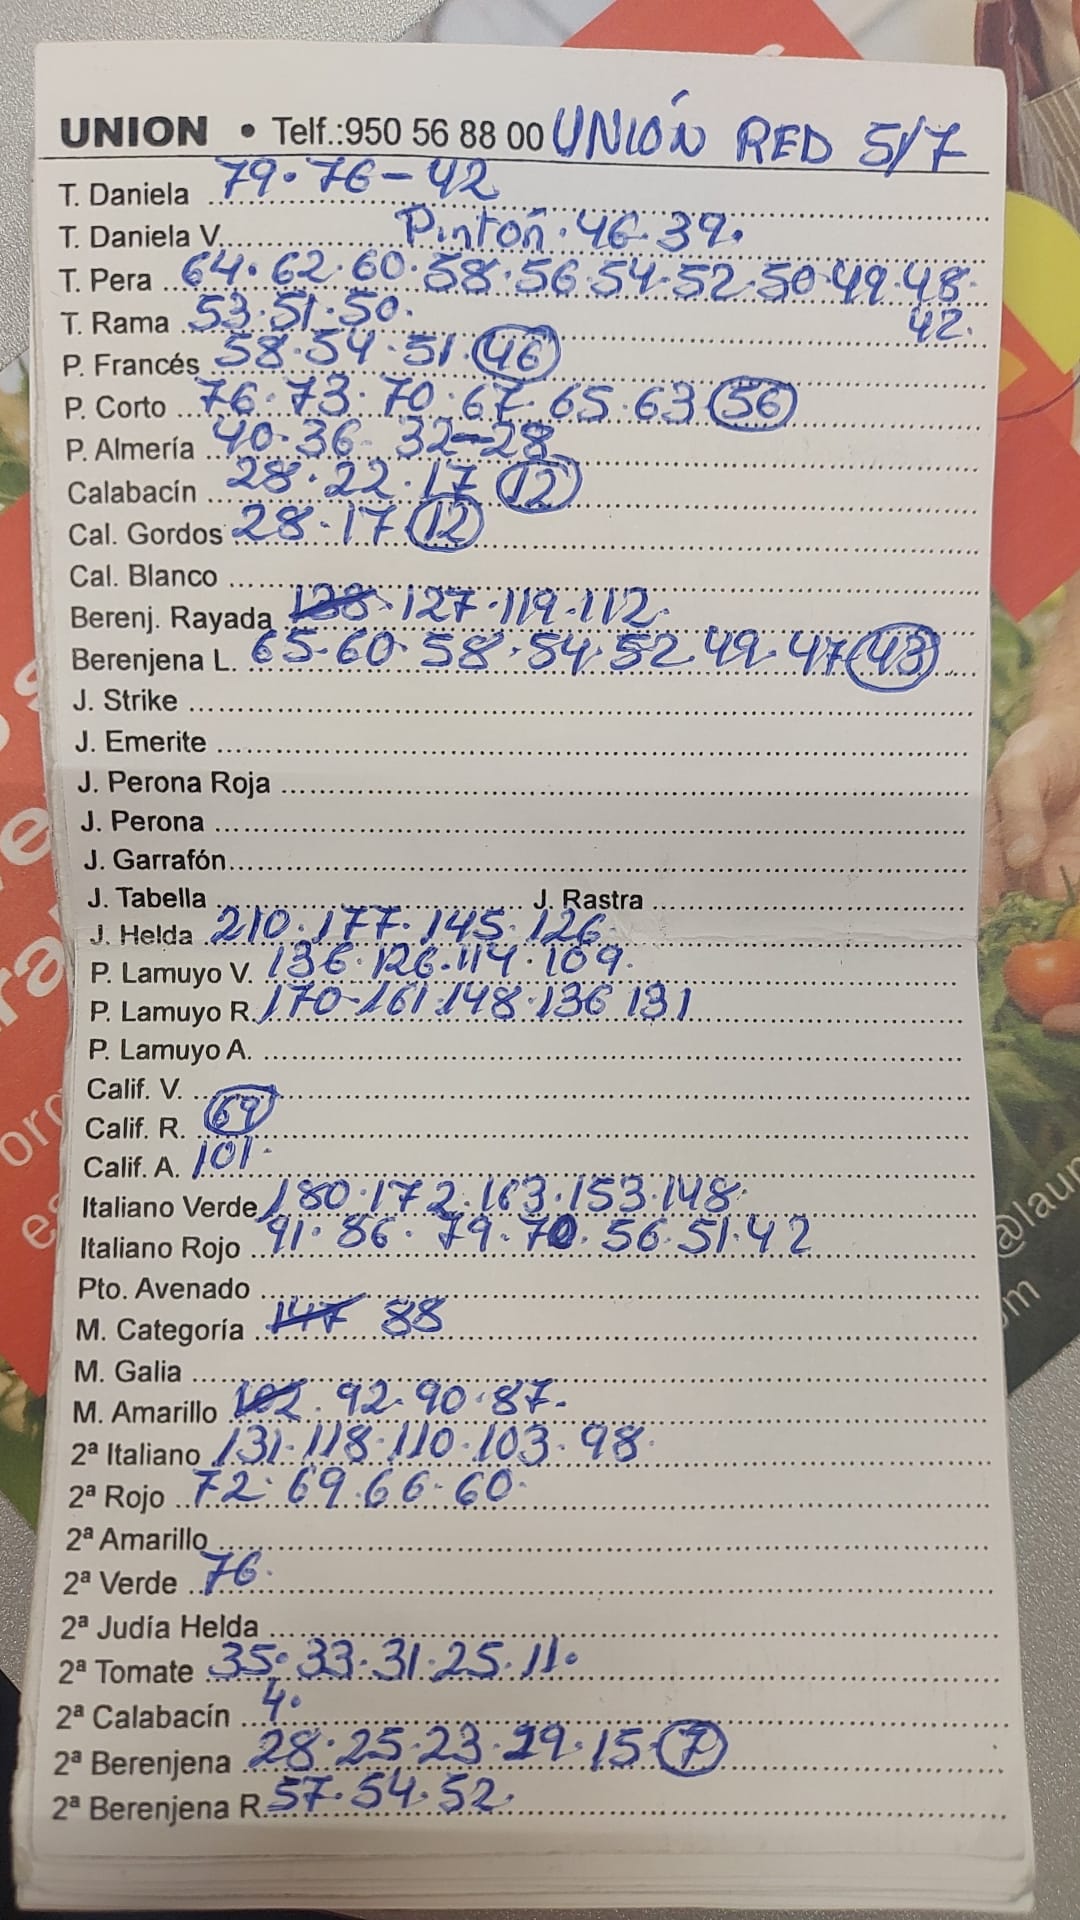 UNION • Telf.:950 56 88 00 UNIÓN RED 5/7
T. Daniela 79·76-42
T. Daniela V. Pintón·46·39·
T. Pera 64·62·60·58·56·54·52·50·49·48·
42·
T. Rama 53·51·50·
P. Francés 58·54·51·46
P. Corto 76·73·70·67·65·63 56
P. Almería 40·36·32-28
Calabacín 28·22·17 12
Cal. Gordos 28·17 12
Cal. Blanco
Berenj. Rayada 127·119·112·
Berenjena L. 65·60·58·54·52·49·47 43
J. Strike
J. Emerite
J. Perona Roja
J. Perona
J. Garrafón
J. Tabella J. Rastra
J. Helda 210·177·145·126·
P. Lamuyo V. 136·126·114·109·
P. Lamuyo R. 170-161·148·136 131
P. Lamuyo A.
Calif. V.
Calif. R. 69
Calif. A. 101·
Italiano Verde 180·172·163·153·148·
Italiano Rojo 91·86·79·70·56·51·42
Pto. Avenado
M. Categoría 147 88
M. Galia
M. Amarillo 102·92·90·87-
2ª Italiano 131·118·110·103·98·
2ª Rojo 72·69·66·60·
2ª Amarillo
2ª Verde 76·
2ª Judía Helda
2ª Tomate 35·33·31·25·11·
2ª Calabacín 4·
2ª Berenjena 28·25·23·19·15·7
2ª Berenjena R. 57·54·52·
@laun